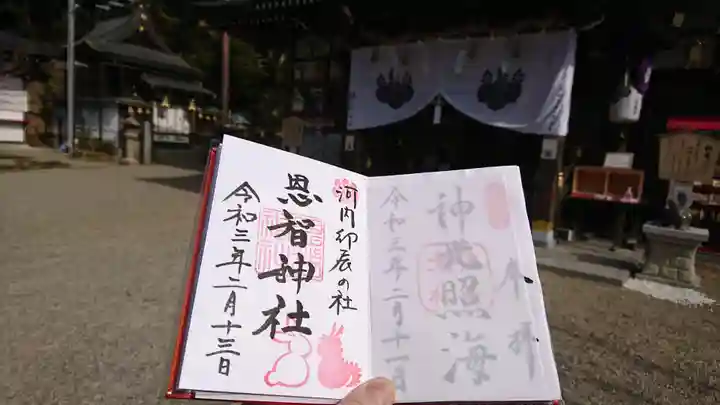 奉拝
神光照海
令和三年二月十一日
河内卯辰の社
恩智神社
令和三年二月十三日